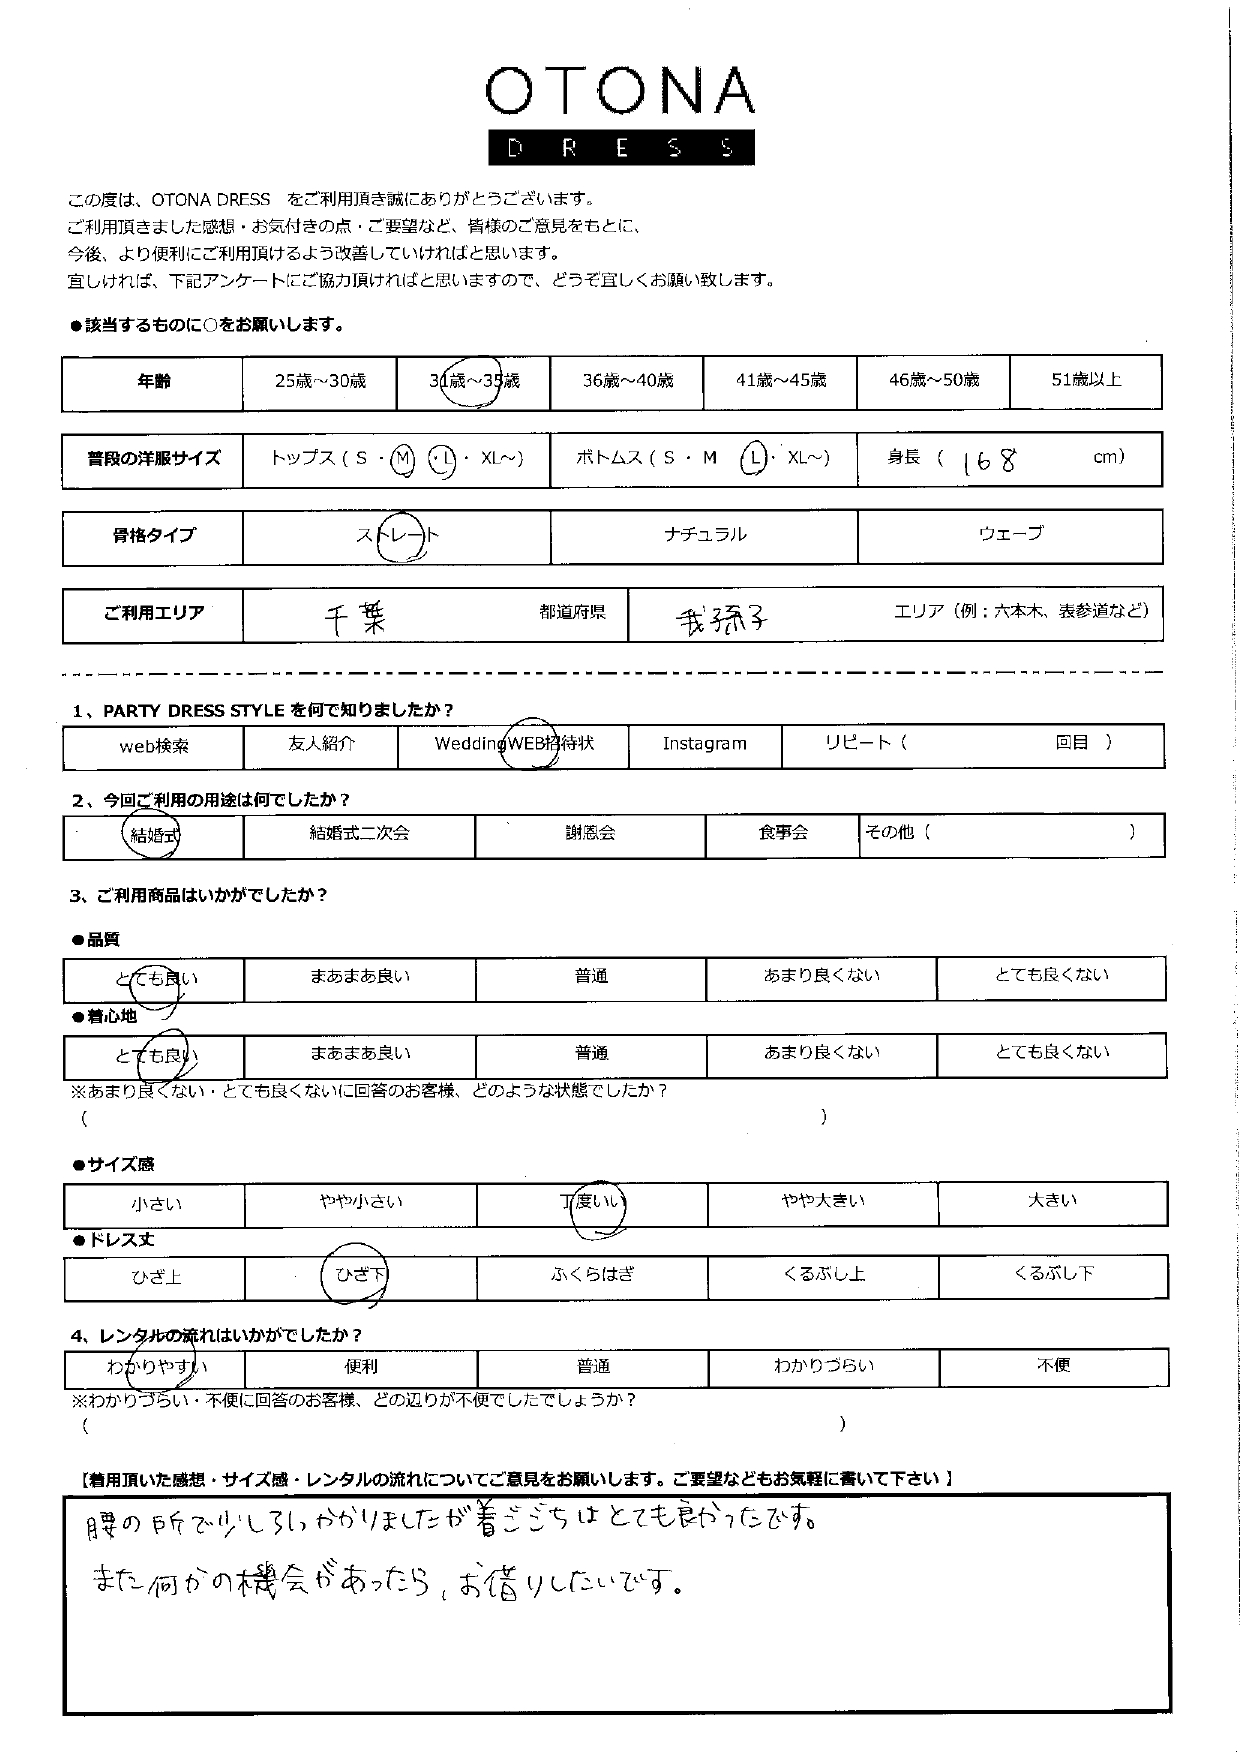 OTONA
DRESS
この度は、OTONA DRESS をご利用頂き誠にありがとうございます。
ご利用頂きました感想・お気付きの点・ご要望など、皆様のご意見をもとに、
今後、より便利にご利用頂けるよう改善していければと思います。
宜しければ、下記アンケートにご協力頂ければと思いますので、どうぞ宜しくお願い致します。
●該当するものに○をお願いします。
年齢 25歳～30歳 31歳～35歳 36歳～40歳 41歳～45歳 46歳～50歳 51歳以上
普段の洋服サイズ トップス ( S ・ M ・ L ・ XL～) ボトムス ( S ・ M ・ L ・ XL～) 身長 ( 168 cm)
骨格タイプ ストレート ナチュラル ウェーブ
ご利用エリア 千葉 都道府県 我孫子 エリア (例：六本木、表参道など)
1、PARTY DRESS STYLE を何で知りましたか？
web検索 友人紹介 WeddingWEB招待状 Instagram リピート ( 回目 )
2、今回ご利用の用途は何でしたか？
結婚式 結婚式二次会 謝恩会 食事会 その他 ( )
3、ご利用商品はいかがでしたか？
●品質
とても良い まあまあ良い 普通 あまり良くない とても良くない
●着心地
とても良い まあまあ良い 普通 あまり良くない とても良くない
※あまり良くない・とても良くないに回答のお客様、どのような状態でしたか？
( )
●サイズ感
小さい やや小さい 丁度いい やや大きい 大きい
●ドレス丈
ひざ上 ひざ下 ふくらはぎ くるぶし上 くるぶし下
4、レンタルの流れはいかがでしたか？
わかりやすい 便利 普通 わかりづらい 不便
※わかりづらい・不便に回答のお客様、どの辺りが不便でしたでしょうか？
( )
【着用頂いた感想・サイズ感・レンタルの流れについてご意見をお願いします。ご要望などもお気軽に書いて下さい 】
腰の所で少しひっかかりましたが着ごごちはとても良かったです。
また何かの機会があったら、お借りしたいです。